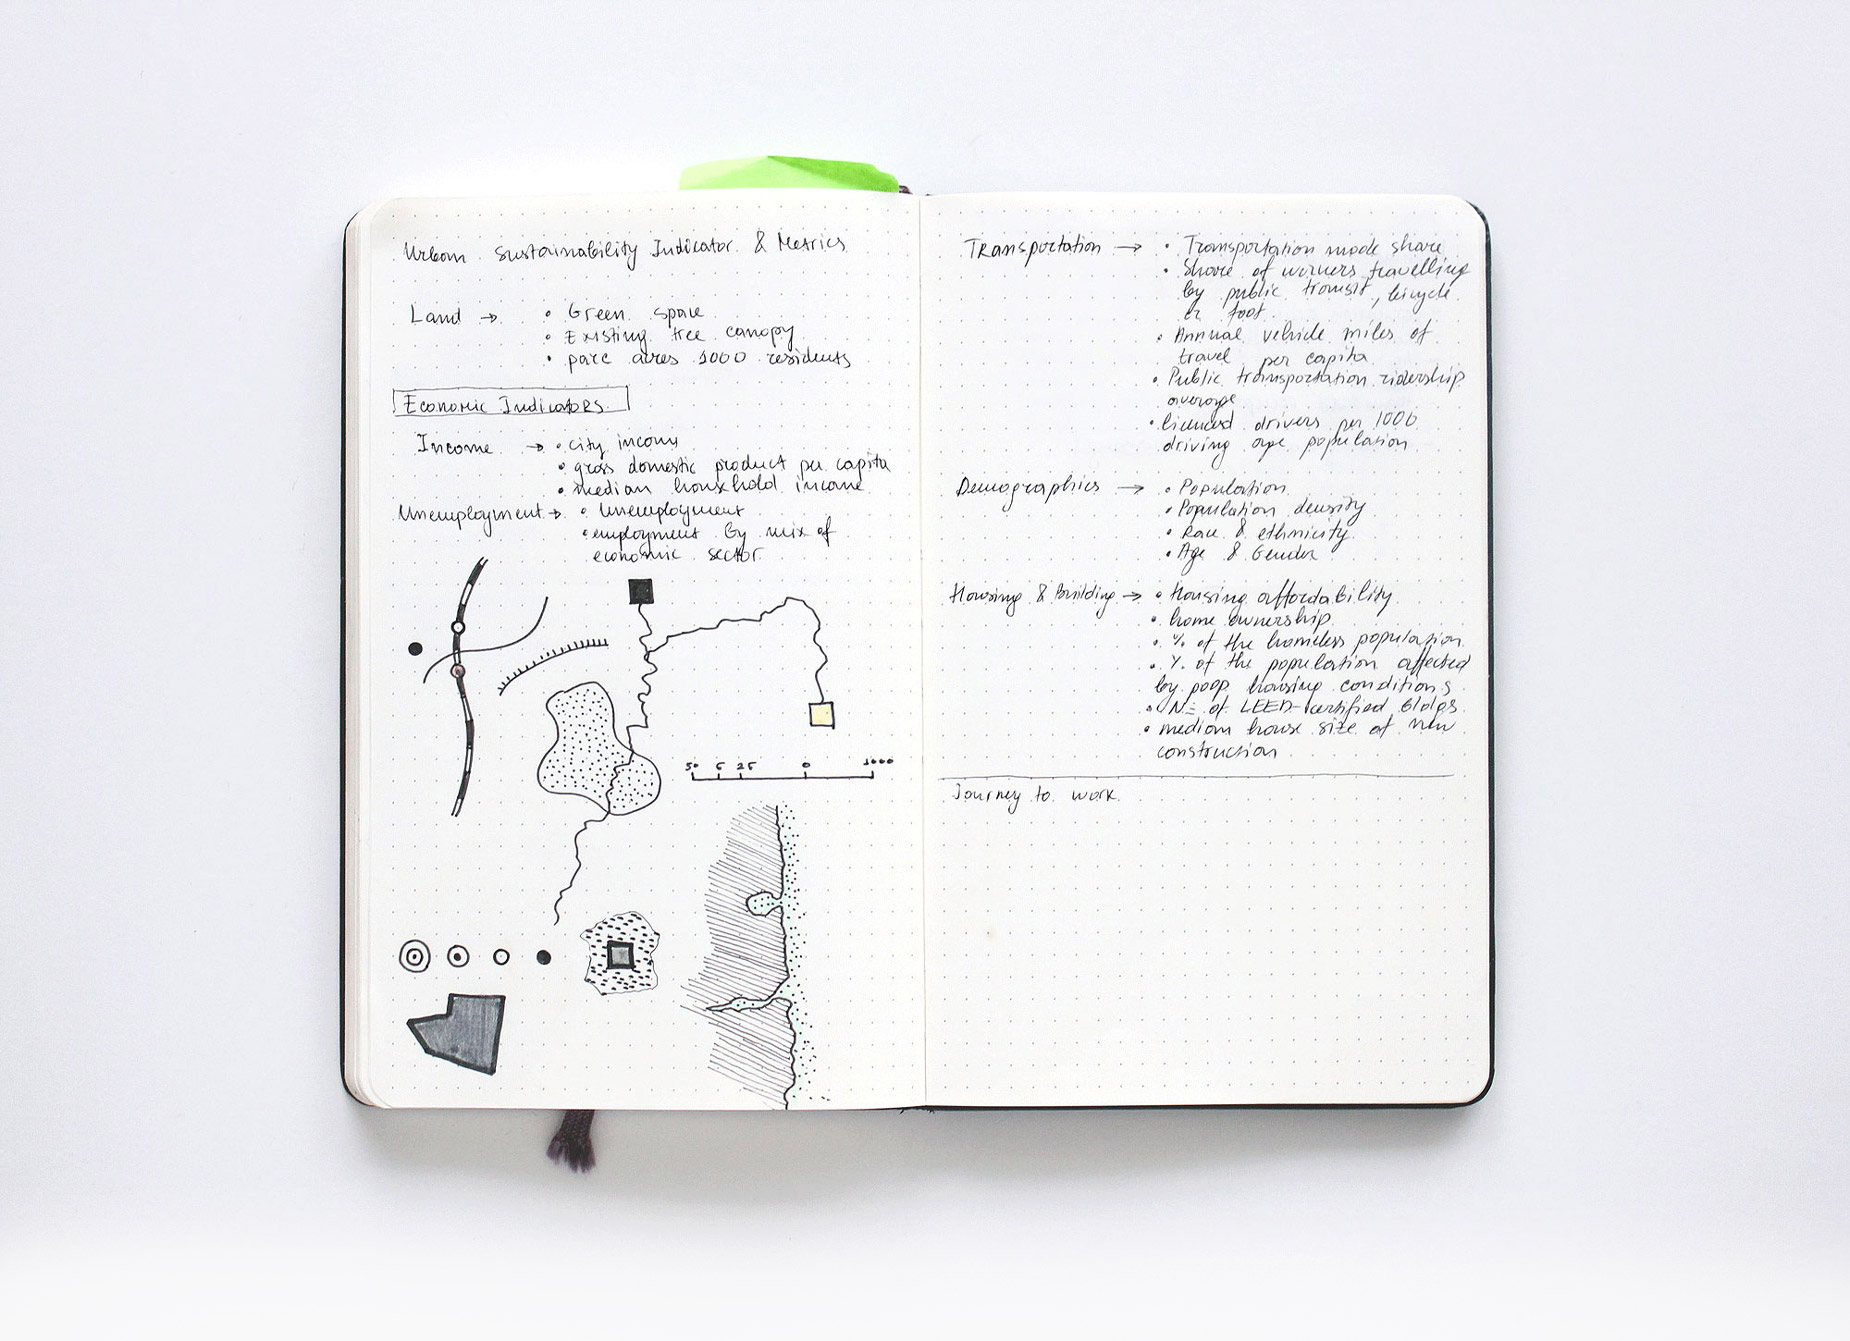 Urban Sustainability Indicator & Metrics
Land → • Green space
• Existing tree canopy
• parc acres 1000 residents
Economic Indicators
Income → • city income
• gross domestic product per capita
• median household income
Unemployment → • Unemployment
• employment by mix of
economic sector
50 5 25 0 1000
Transportation → • Transportation mode share
• Share of workers travelling
by public transit, bicycle
or foot
• Annual vehicle miles of
travel per capita
• Public transportation ridership
average
• licensed drivers per 1000
driving age population
Demographics → • Population
• Population density
• Race & ethnicity
• Age & Gender
Housing & Building → • Housing affordability
• home ownership
• % of the homeless population
• % of the population affected
by poor housing conditions
• № of LEED-certified bldgs
• median house size of new
construction
Journey to work